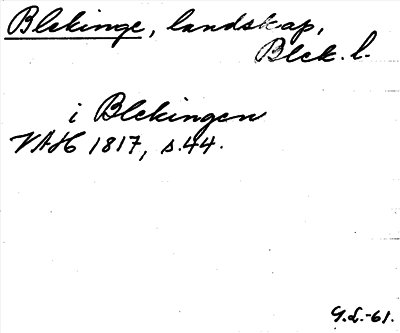 Blekinge, landskap,
Blek. l.
i Blekingen
VAH 1817, s.44.
G.L.-61.